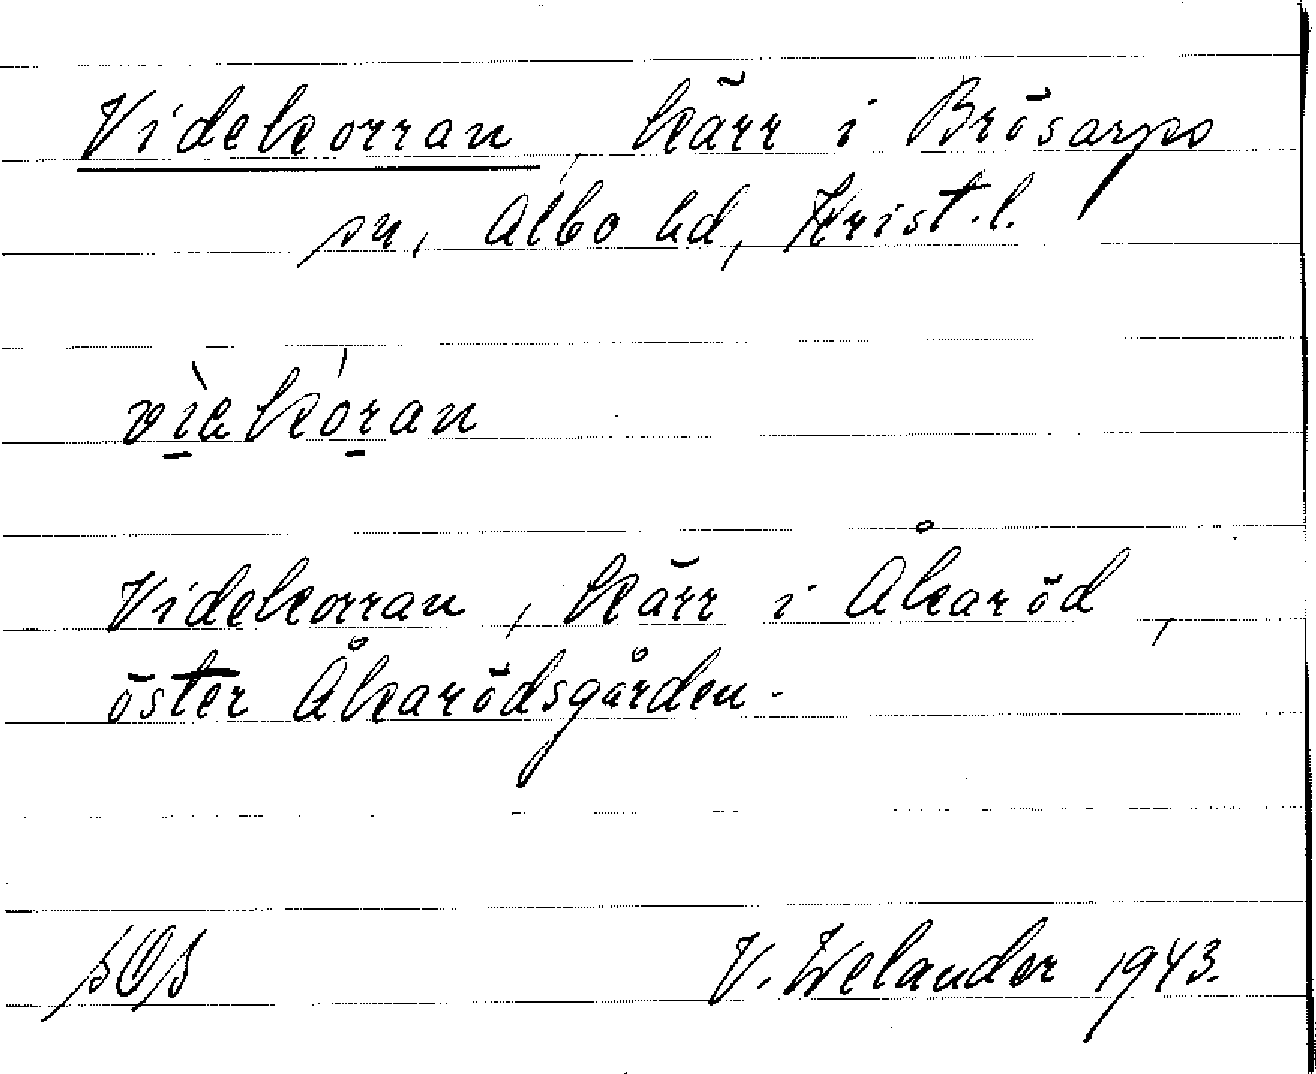 Videkorran, kärr i Brösarps
sn, Albo hd, Krist. l.
Videkorran, kärr i Åkaröd,
öster Åkarödsgården.
V. Welander 1943.